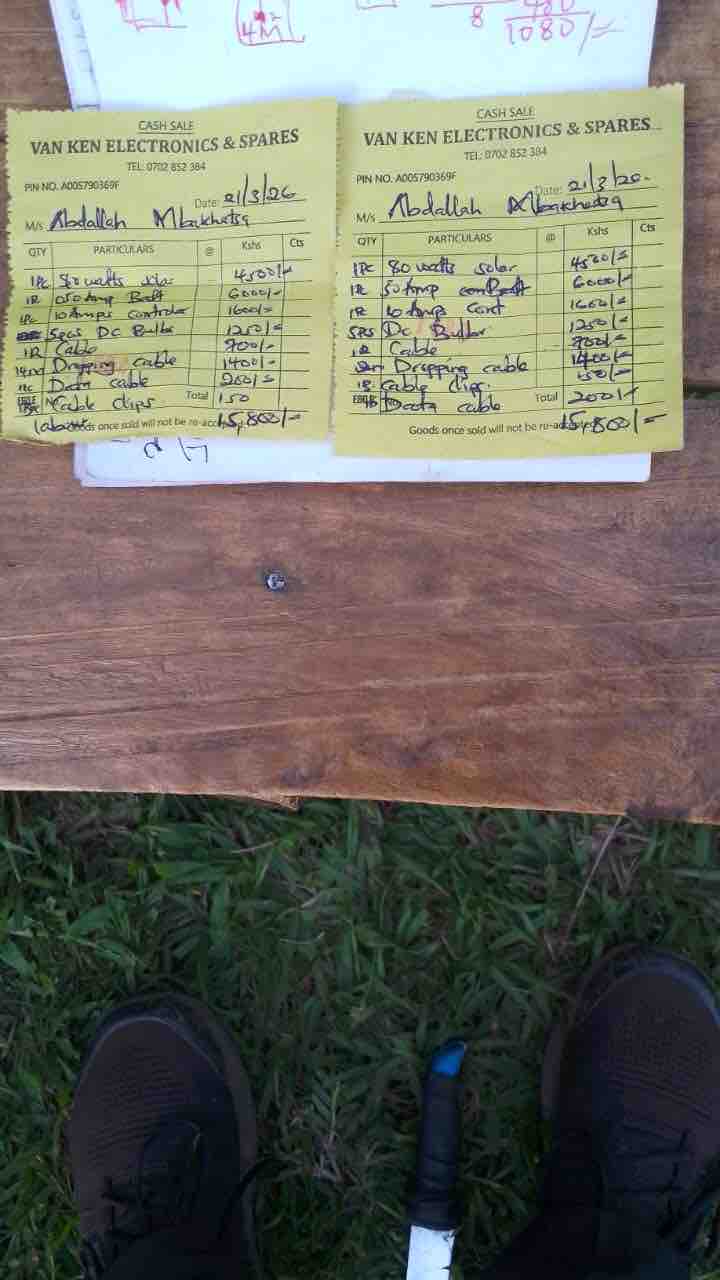 8
480
4M²
1080/=
CASH SALE
VAN KEN ELECTRONICS & SPARES
TEL: 0702 852 384
PIN NO. A005790369F
Date: 21/3/26
M/s Abdallah Mbakhatsa
QTY PARTICULARS @ Kshs Cts
1PC 80 watts solar 4500/=
1R 050 Amp Batt 6000/=
1PC 10 Amps controler 1600/=
5pcs DC Bulbs 1250/=
1R Cable 700/=
Dropping cable 1400/=
1PC Data cable 200/=
Cable clips Total 150
Goods once sold will not be re-accepted 15,800/=
CASH SALE
VAN KEN ELECTRONICS & SPARES
TEL: 0702 852 384
PIN NO. A005790369F
Date: 21/3/26
M/s Abdallah Mbakhatsa
QTY PARTICULARS @ Kshs Cts
1PC 80 watts solar 4500/=
1R 50 Amp 6000/=
1R 10 Amps Cont 1600/=
5PCS DC Bulbs 1250/=
1R Cable 700/=
Dropping cable 1400/=
cable clips 150/=
Data cable Total 200/=
Goods once sold will not be re-accepted 15,800/=